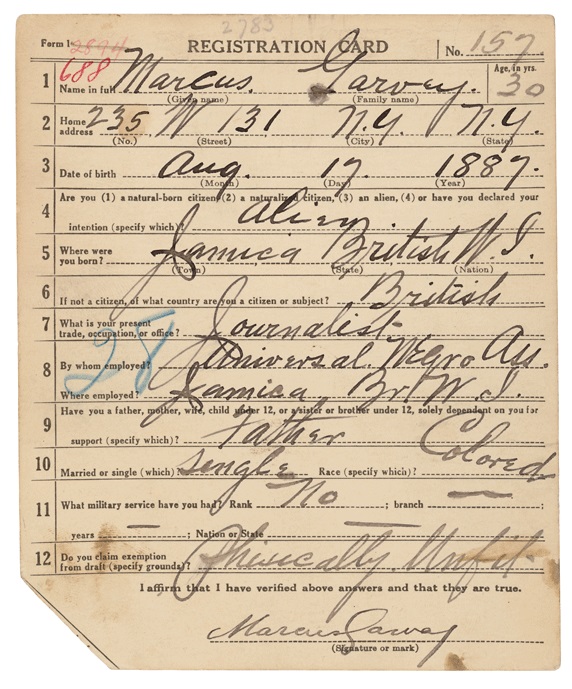 2783
Form 1 2894 REGISTRATION CARD No. 157
688
1 Name in full Marcus. Garvey. Age, in yrs. 30
(Given name) (Family name)
2 Home address 235 W 131 N.Y. N.Y.
(No.) (Street) (City) (State)
3 Date of birth Aug. 17. 1887.
(Month) (Day) (Year)
4 Are you (1) a natural-born citizen, (2) a naturalized citizen, (3) an alien, (4) or have you declared your
intention (specify which)? Alien.
5 Where were you born? Jamica British W. I.
(Town) (State) (Nation)
6 If not a citizen, of what country are you a citizen or subject? British
7 What is your present trade, occupation, or office? Journalist
28
8 By whom employed? Universal. Negro Ass.
Where employed? Jamica, Br W. I.
9 Have you a father, mother, wife, child under 12, or a sister or brother under 12, solely dependent on you for
support (specify which)? Father
10 Married or single (which)? Single Race (specify which)? Colored
11 What military service have you had? Rank No ; branch —
years — ; Nation or State —
12 Do you claim exemption from draft (specify grounds)? Phisically Unfit
I affirm that I have verified above answers and that they are true.
Marcus Garvey
(Signature or mark)